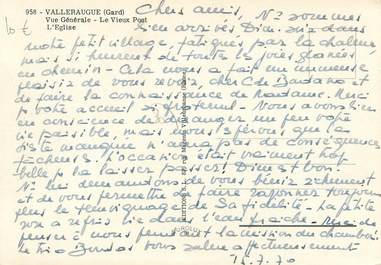 958 - VALLERAUGUE (Gard)
Vue Générale - Le Vieux Pont
L'Eglise
10 €
Chers amis, Ns sommes
bien arrivés Dim. soir dans
notre petit village, fatigués par la chaleur
mais si heureux de toutes les joies glanées
en chemin - Cela nous a fait un immense
plaisir de vous revoir cher C de Bordano et
de faire la connaissance de Madame. Merci
pr votre accueil si fraternel - Nous avons bien
conscience de déranger un peu votre
vie paisible, mais nous espérons que la
diète manquée n'aura pas de conséquences
fâcheuses. L'occasion était vraiment trop
belle pr la laisser passer! Dieu est bon.
Ns lui demandons de vous bénir richement
et de vous permettre de faire rayonner toujours
plus le témoignage de Sa fidélité - La petite
dans l'eau fraîche - Merci de
penser à nous pendant la mission du Chambon
Le Trio vous salue affectueusement
7.70